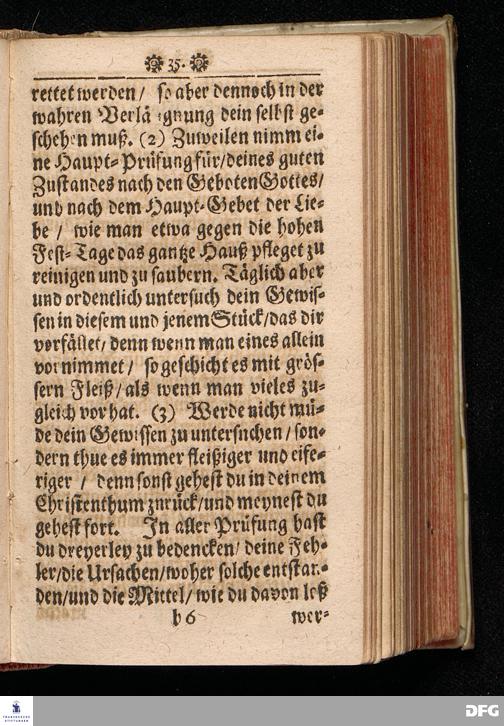 35.
rettet werden/ so aber dennoch in der
wahren Verläugnung dein selbst ge-
schehen muß. (2) Zuweilen nimm ei-
ne Haupt-Prüfung für/deines guten
Zustandes nach den Geboten Gottes/
und nach dem Haupt-Gebet der Lie-
be / wie man etwa gegen die hohen
Fest-Tage das gantze Hauß pfleget zu
reinigen und zu saubern. Täglich aber
und ordentlich untersuch dein Gewis-
sen in diesem und jenem Stück/das dir
vorfället/ denn wenn man eines allein
vornimmet / so geschicht es mit grös-
sern Fleiß/ als wenn man vieles zu-
gleich vor hat. (3) Werde nicht mü-
de dein Gewissen zu untersuchen/ son-
dern thue es immer fleißiger und eife-
riger / denn sonst gehest du in deinem
Christenthum zurück/und meynest du
gehest fort. In aller Prüfung hast
du dreyerley zu bedencken/ deine Feh-
ler/die Ursachen/woher solche entstan-
den/und die Mittel/ wie du davon loß
b 6 wer-
FRANCKESCHE
STIFTUNGEN
DFG